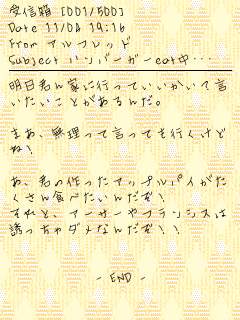 受信箱 [001/500]
Date 11/04 19:16
From アルフレッド
Subject ハンバーガーeat中・・・
明日君ん家に行っていいかいて言
いたいことがあるんだ。
まあ、無理って言っても行くけど
ね！
あ、君の作ったアップルパイがた
くさん食べたいんだぞ！
それと、アーサーやフランシスは
誘っちゃダメなんだぞ！！
- END -